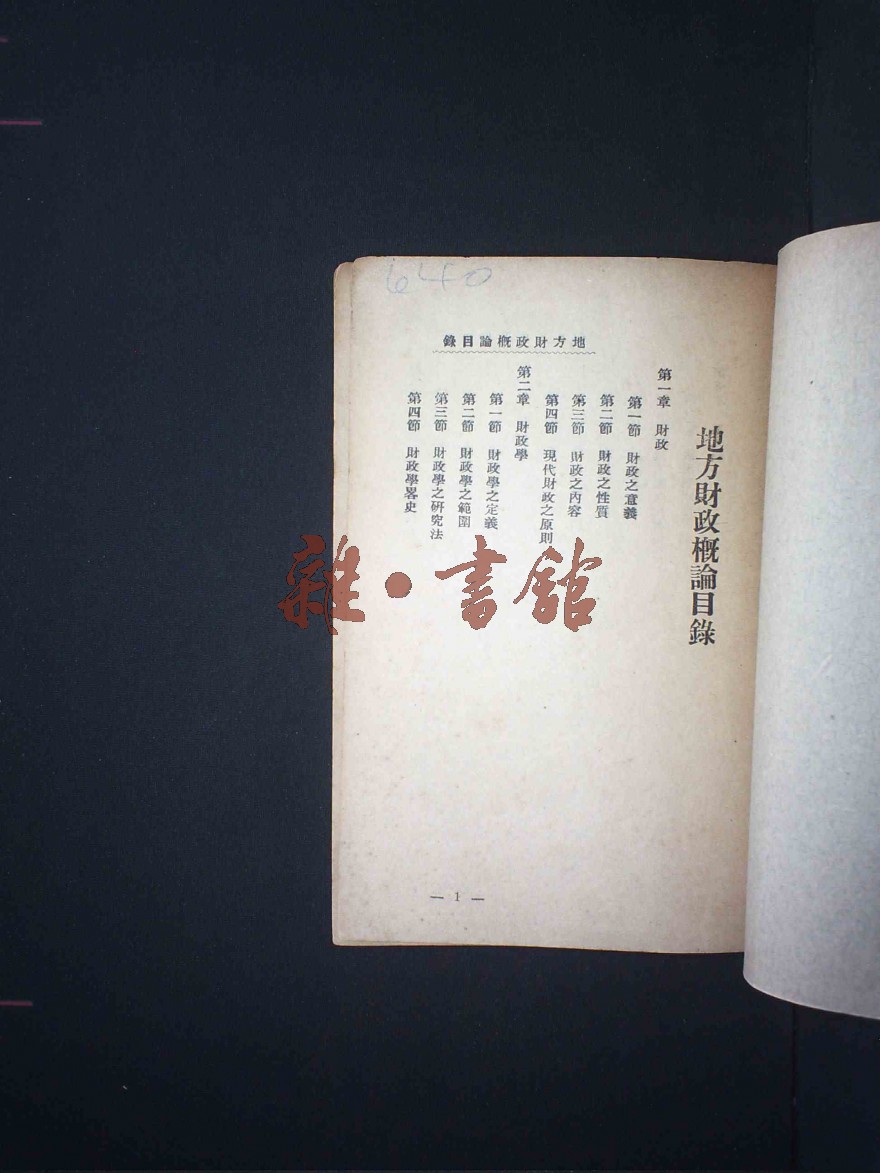 640
地方財政概論目錄
地方財政概論目錄
第一章　財政
第一節　財政之意義
第二節　財政之性質
第三節　財政之內容
第四節　現代財政之原則
第二章　財政學
第一節　財政學之定義
第二節　財政學之範圍
第三節　財政學之研究法
第四節　財政學畧史
— 1 —
雜·書館